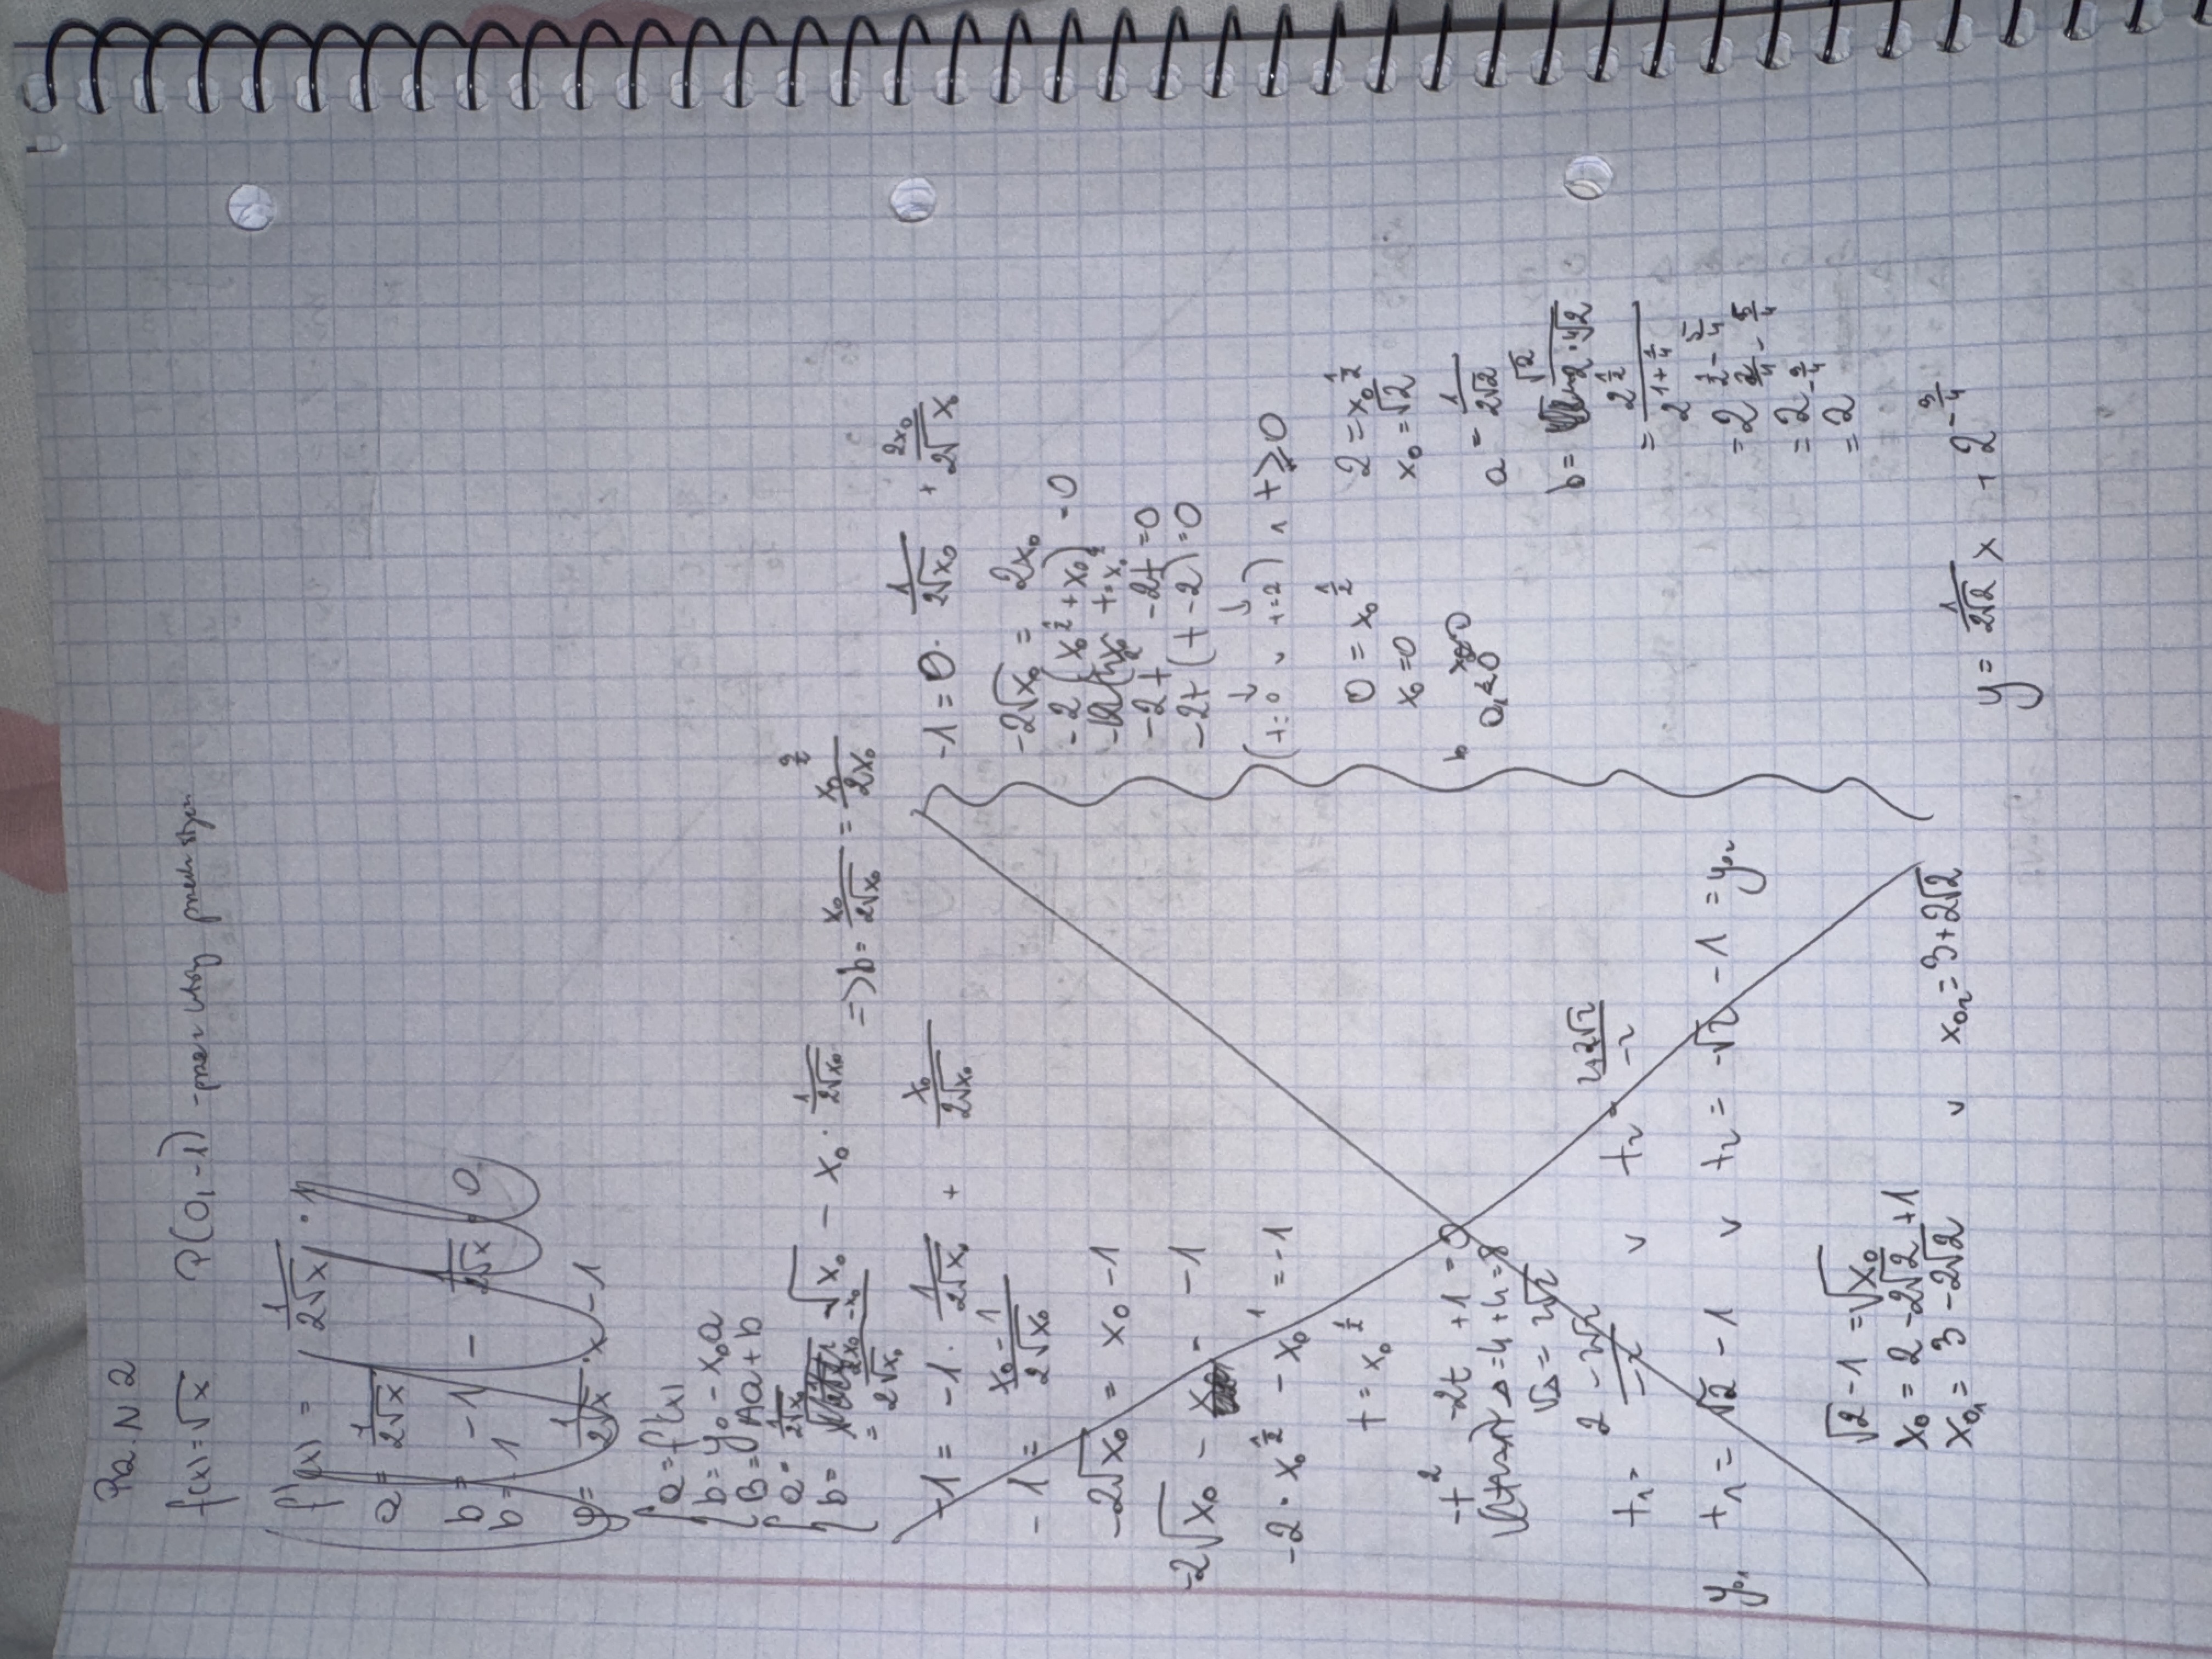 Pa. N 2
f(x)=√x P(0,-1)
f'(x) = 1/(2√x) · 1
a = 1/(2√x)
b = -1 - 1/(2√x) · 0
b = -1
y = 1/(2√x) · x - 1
{ a = f'(x)
b = y₀ - x₀a
B = Aa + b
{ a = 1/(2√x₀)
b = √x₀ - x₀ · 1/(2√x₀) => b = x₀/(2√x₀)
= (2x₀-x₀)/(2√x₀)
-1 = -1 · 1/(2√x₀) + x₀/(2√x₀)
-1 = (x₀-1)/(2√x₀)
-2√x₀ = x₀ - 1
-2√x₀ - x₀ = -1
-2 · x₀^(1/2) - x₀^1 = -1
t = x₀^(1/2)
-t² -2t +1 = 0
Δ=4+4=8
√Δ = 2√2
t₁ = (2-2√2)/-2 v t₂ = (2+2√2)/-2
y₀₁ t₁ = √2 - 1 v t₂ = -√2 - 1 = y₀₂
√2 - 1 = √x₀
x₀ = 2 - 2√2 + 1
x₀₁ = 3 - 2√2 v x₀₂ = 3 + 2√2
-1 = 0 · 1/(2√x₀) + 2x₀/(2√x₀)
-2√x₀ = 2x₀
-2(x₀^(1/2) + x₀) = 0
-2t² - 2t = 0
-2t(t-2) = 0
(t=0 v t=2) ∧ t≥0
0 = x₀^(1/2)
x₀ = 0
2 = x₀^(1/2)
x₀ = √2
a = 1/(2√2)
b = √2/(2·⁴√2)
= 2^(1/2)/2^(1+1/4)
= 2^(1/2 - 5/4)
= 2^(2/4 - 5/4)
= 2^(-3/4)
y = 1/(2√2) x + 2^(-3/4)